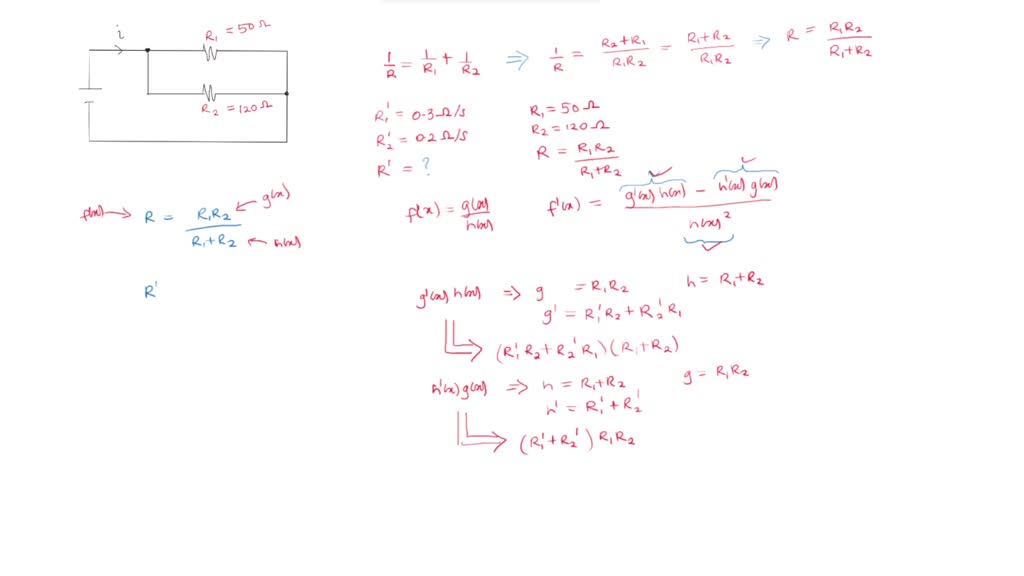 i
R₁ = 50Ω
R₂ = 120Ω
1/R = 1/R₁ + 1/R₂ ⇒ 1/R = (R₂+R₁)/(R₁R₂) = (R₁+R₂)/(R₁R₂) ⇒ R = R₁R₂/(R₁+R₂)
R₁' = 0.3Ω/s
R₂' = 0.2Ω/s
R' = ?
R₁ = 50Ω
R₂ = 120Ω
R = R₁R₂/(R₁+R₂)
f(x) → R = R₁R₂/(R₁+R₂) ← g(x)
← h(x)
R'
f(x) = g(x)/h(x)
f'(x) = (g'(x) h(x) − h'(x) g(x))/h(x)²
g'(x) h(x) ⇒ g = R₁R₂ h = R₁+R₂
g' = R₁'R₂ + R₂'R₁
(R₁'R₂ + R₂'R₁)(R₁+R₂)
h'(x) g(x) ⇒ h = R₁+R₂ g = R₁R₂
h' = R₁' + R₂'
(R₁' + R₂') R₁R₂